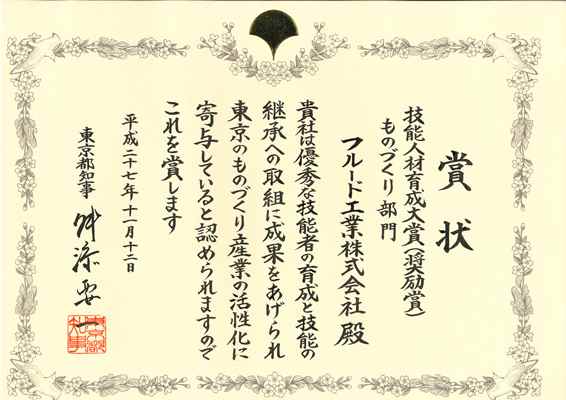 賞状
技能人材育成大賞(奨励賞)
ものづくり部門
フルード工業株式会社殿
貴社は優秀な技能者の育成と技能の
継承への取組に成果をあげられ
東京のものづくり産業の活性化に
寄与していると認められますので
これを賞します
平成二十七年十一月十二日
東京都知事 舛添要一